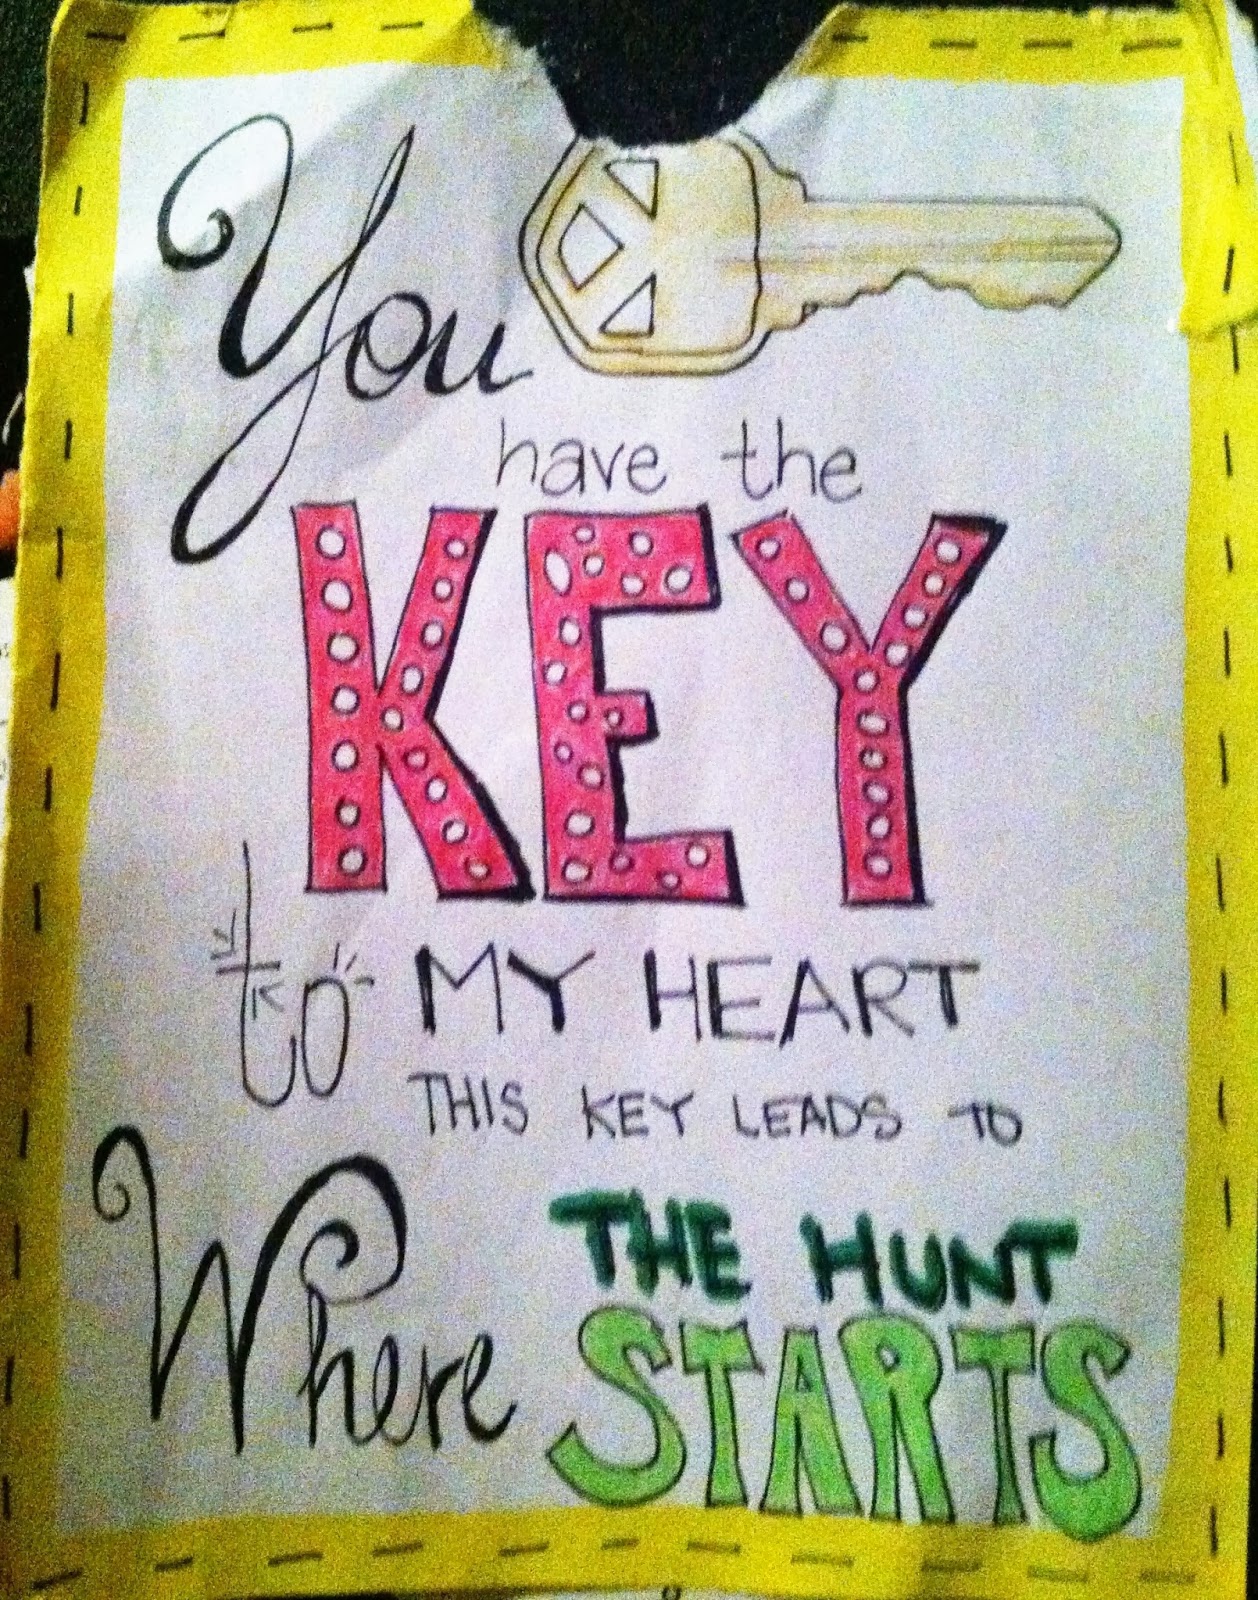 You
have the
KEY
to MY HEART
THIS KEY LEADS TO
Where THE HUNT
STARTS